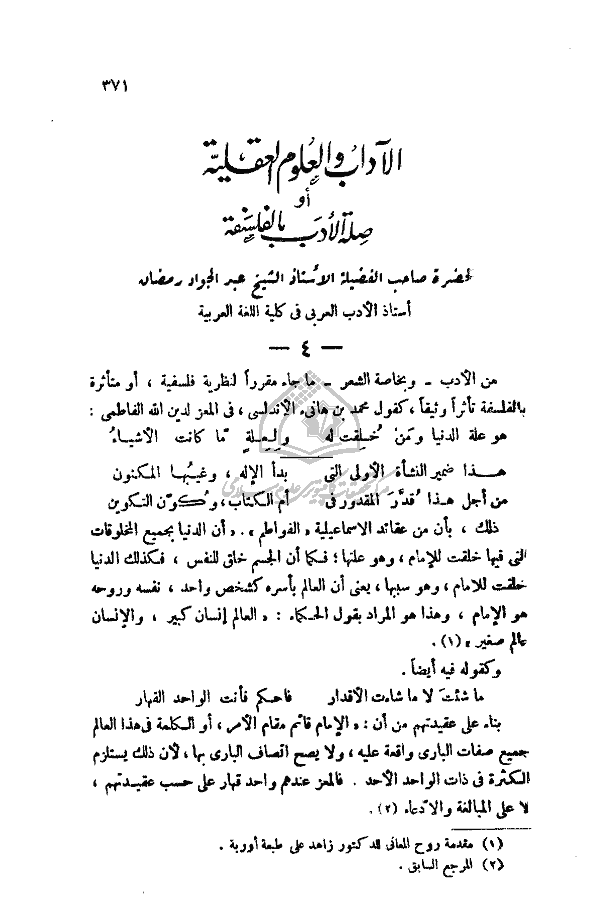 ٣٧١
الآداب والعلوم العقلية
أو
صلة الأدب بالفلسفة
لحضرة صاحب الفضيلة الأستاذ الشيخ عبد الجواد رمضان
أستاذ الأدب العربى فى كلية اللغة العربية
— ٤ —
من الأدب – وبخاصة الشعر – ما جاء مقرراً لنظرية فلسفية ، أو متأثرة
بالفلسفة تأثراً وثيقاً ، كقول محمد بن هانىء الأندلسى ، فى المعز لدين الله الفاطمى :
هو علة الدنيا ومَنْ خُلِقت له ولِعلةٍ مّا كانت الأشياءُ
هـذا ضمير النشأة الأولى التى بدأ الإله ، وغيبُها المكنون
من أجل هذا قُدِّرَ المقدور فى أم الكتاب ، وكُوِّن التكوين
ذلك ، بأن من عقائد الاسماعيلية « الفواطم » . أن الدنيا بجميع المخلوقات
التى فيها خلقت للإمام ، وهو علتها ؛ فكما أن الجسم خلق للنفس ، فكذلك الدنيا
خلقت للامام ، وهو سببها ، يعنى أن العالم بأسره كشخص واحد ، نفسه وروحه
هو الإمام ، وهذا هو المراد بقول الحكماء : « العالم إنسان كبير ، والإنسان
عالم صغير » (١) .
وكقوله فيه أيضاً .
ما شئتَ لا ما شاءت الأقدار فاحكم فأنت الواحد القهار
بناء على عقيدتهم من أن : « الإمام قائم مقام الأمر ، أو الكلمة فى هذا العالم
جميع صفات البارى واقعة عليه ، ولا يصح اتصاف البارى بها ، لأن ذلك يستلزم
الكثرة فى ذات الواحد الأحد . فالمعز عندهم واحد قهار على حسب عقيدتهم ،
لا على المبالغة والادعاء (٢) .
(١) مقدمة روح المعانى للدكتور زاهد على طبعة أوربة .
(٢) المرجع السابق .